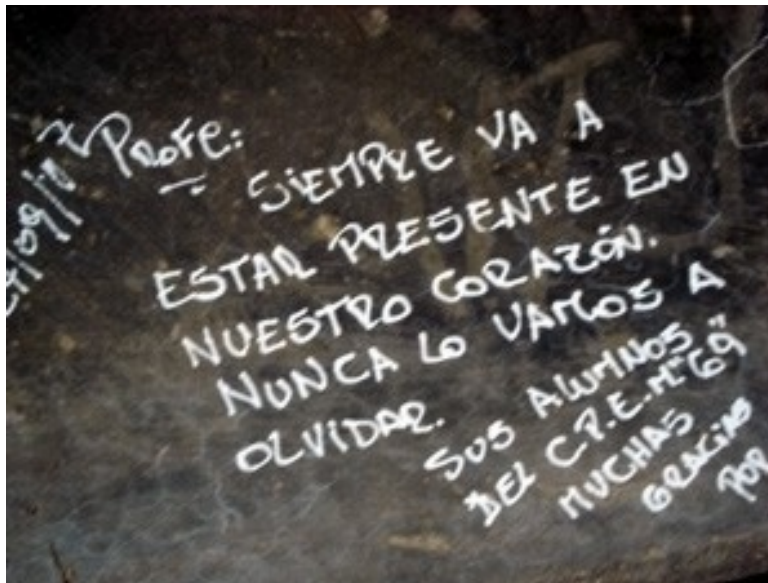 /09/07
Profe:
SIEMPRE VA A
ESTAR PRESENTE EN
NUESTRO CORAZÓN.
NUNCA LO VAMOS A
OLVIDAR.
SUS ALUMNOS
DEL C.P.E.M. "69"
MUCHAS
GRACIAS
POR